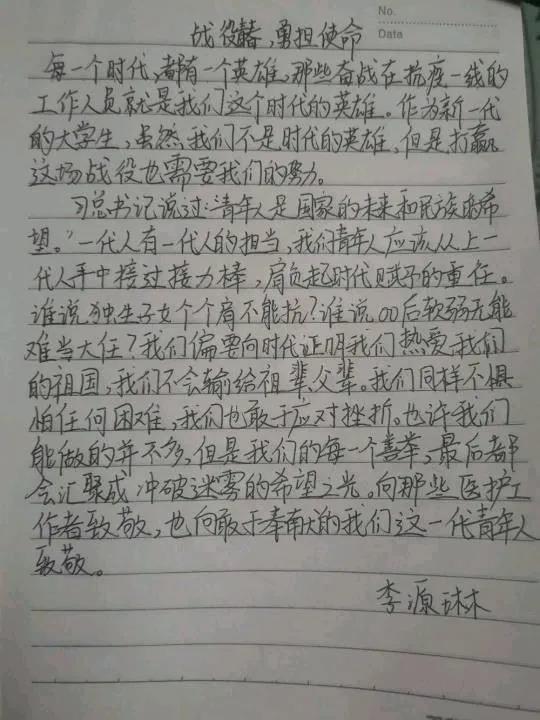 No.
Date
战役有我,勇担使命
每一个时代,都有一个英雄,那些奋战在抗疫一线的
工作人员就是我们这个时代的英雄。作为新一代
的大学生,虽然我们不是时代的英雄,但是打赢
这场战役也需要我们的努力。
习总书记说过:“青年人是国家的未来和民族的希
望。”一代人有一代人的担当,我们青年人应该从上一
代人手中接过接力棒,肩负起时代赋予的重任。
谁说独生子女个个肩不能抗?谁说00后软弱无能
难当大任?我们偏要向时代证明我们热爱我们
的祖国,我们不会输给祖辈父辈。我们同样不惧
怕任何困难,我们也敢于应对挫折。也许我们
能做的并不多,但是我们的每一个善举,最后都
会汇聚成冲破迷雾的希望之光。向那些医护工
作者致敬,也向敢于奉献的我们这一代青年人
致敬。
李源琳